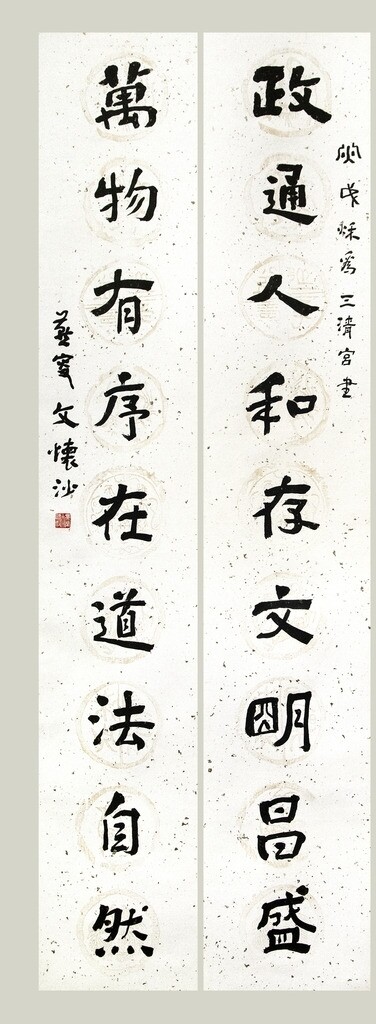 戌秋為三清宮書
政通人和存文明昌盛
萬物有序在道法自然
燕叟文懷沙